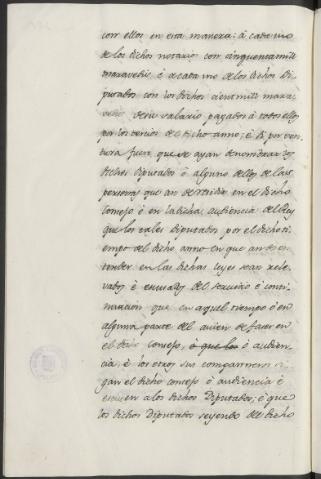 con ellos en esta manera: á cada uno
de los dichos notarios con cinquenta mill
maravedis, é á cada uno de los dichos Di-
putados con los dichos cient mill mara-
vedis de su salario, pagados á todos ellos
por los tercios del dicho anno; é si por ven-
tura fuere que se ayan de nombrar los
dichos Diputados ó alguno dellos de las
personas que an de residir en el dicho
Consejo ó en la dicha audiencia del Rey
que los tales Diputados por el dicho ti-
empo del dicho anno en que an de en-
tender en las dichas leyes sean rele-
vados é escusados del servicio é conti-
nuacion que en aquel tiempo ó en
alguna parte del avien de facer en
el dicho consejo, é que los ó audien-
cia, é los otros sus companneros ri-
gan el dicho consejo é audiencia é
escusen á los dichos Diputados; é que
los dichos Diputados seyendo del dicho